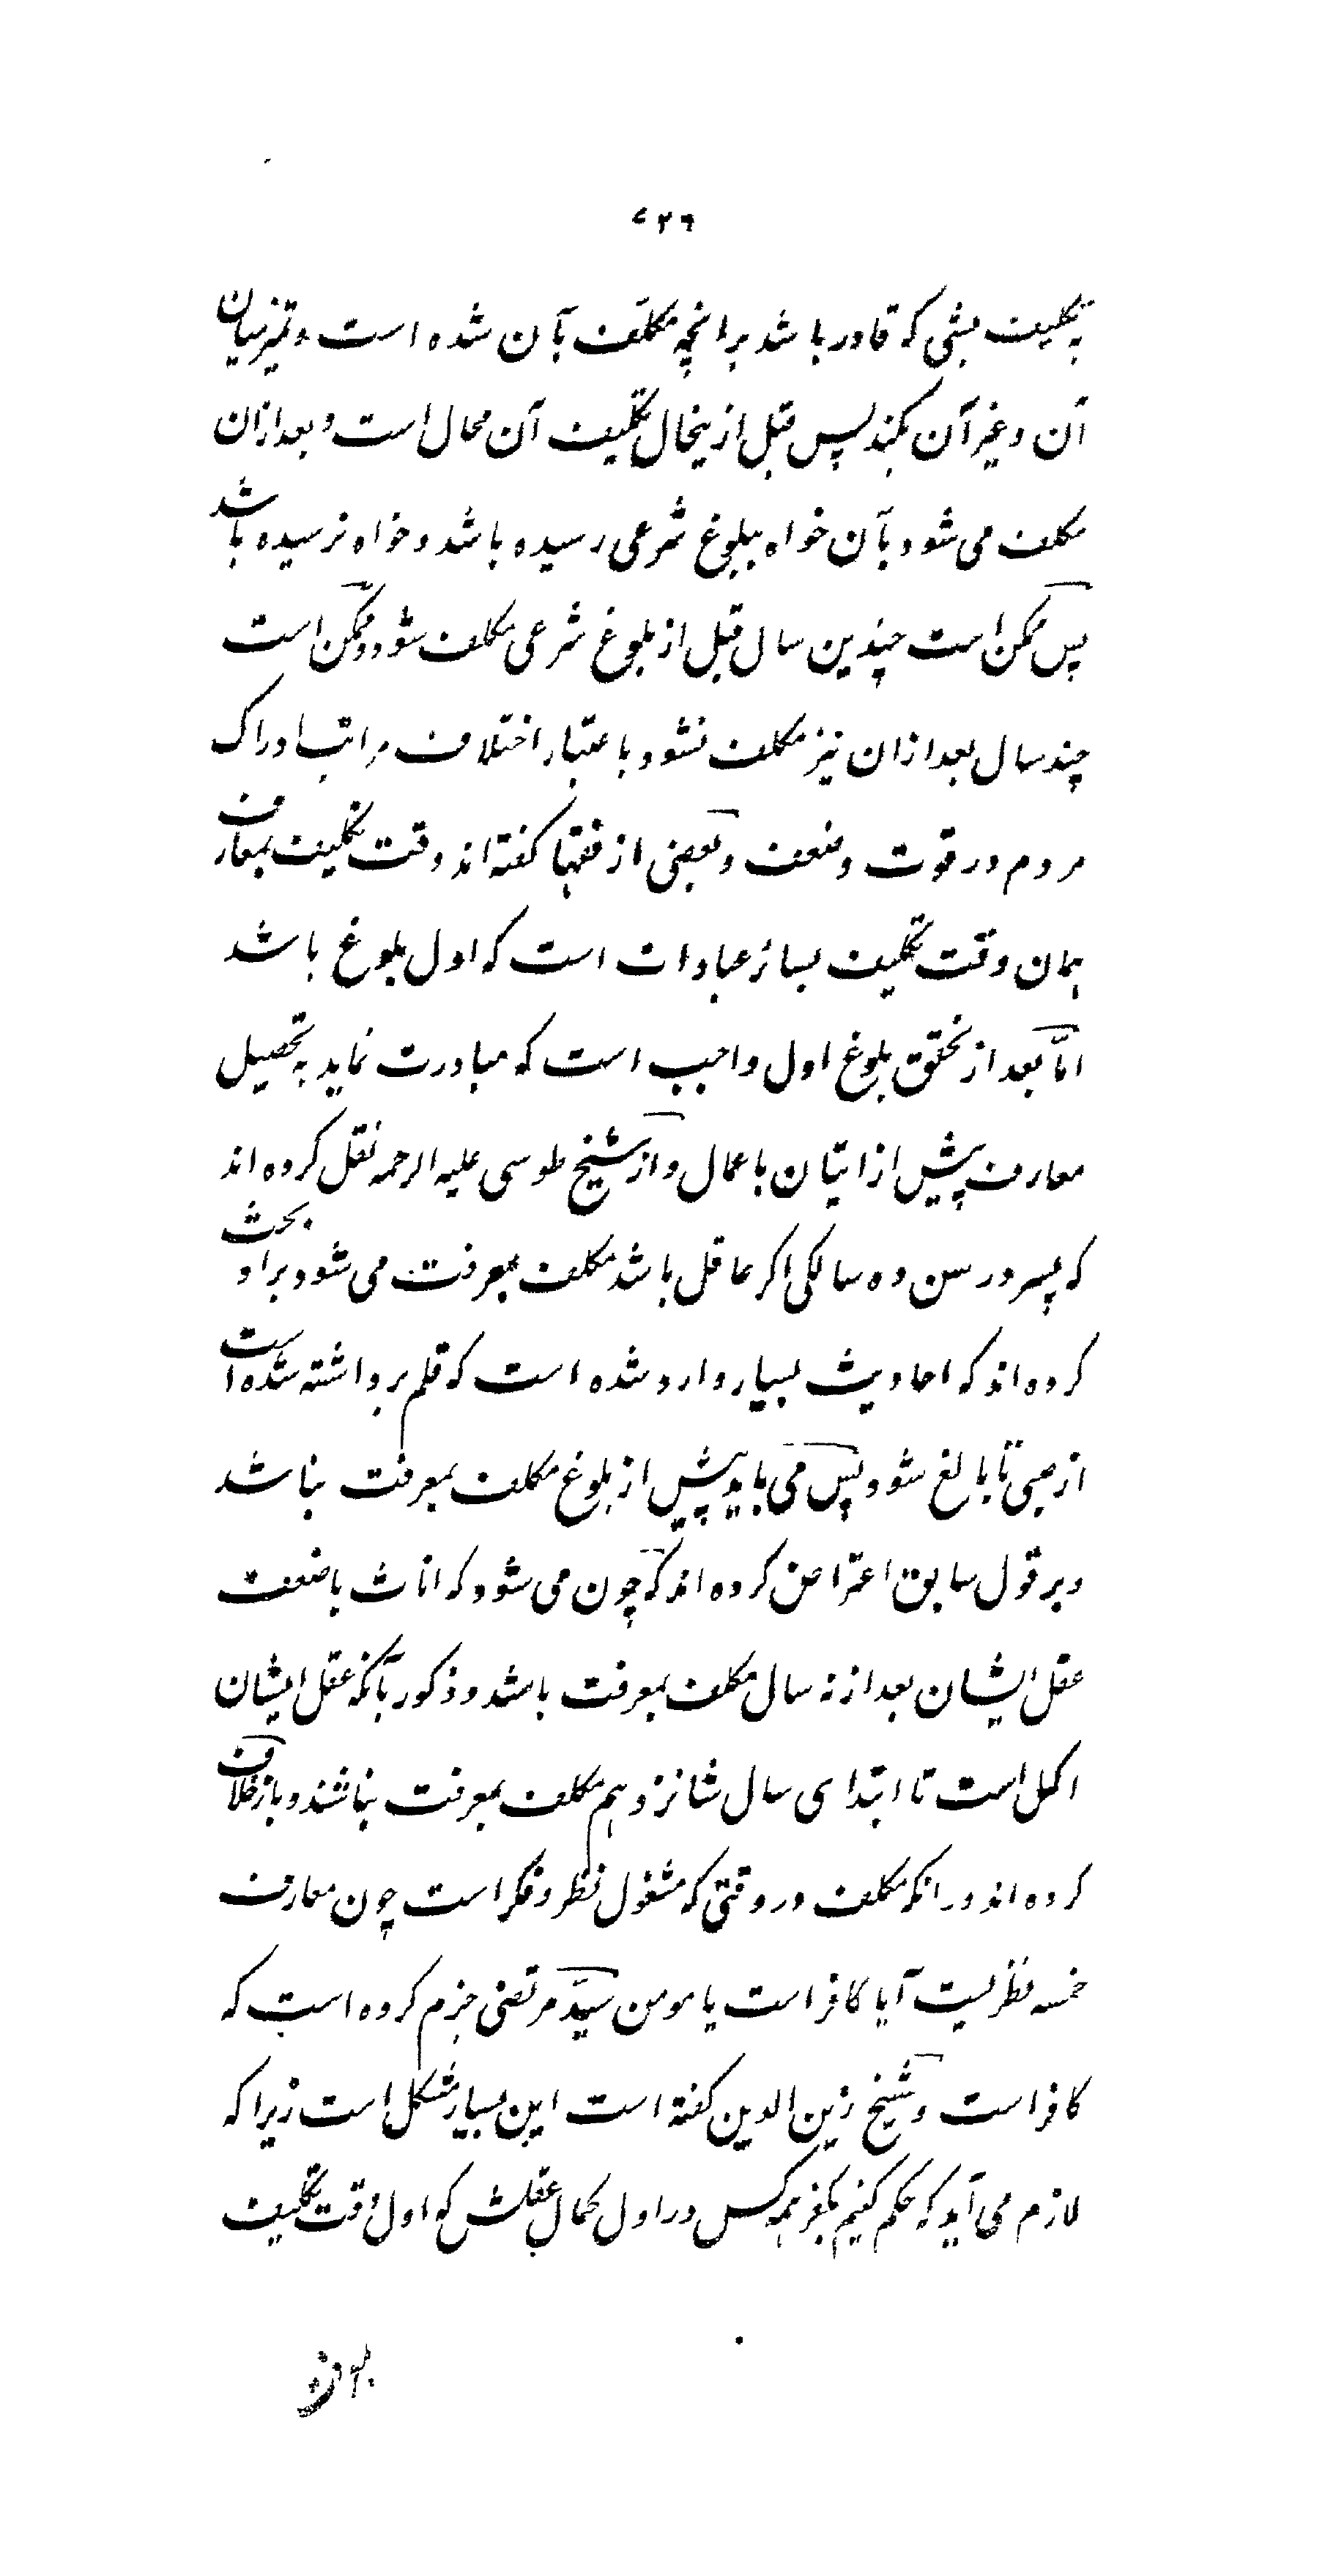 ۷۲۶
به تکلیف بشی که قادر باشد بر انچه مکلف بآن شده است و تمیز میان
آن و غیر آن بکند پس قبل از ینحال تکلیف آن محال است و بعد ازان
مکلف می شود بآن خواه ببلوغ شرعی رسیده باشد و خواه نرسیده باشد
پس ممکن است چندین سال قبل از بلوغ شرعی مکلف شود و ممکن است
چند سال بعد ازان نیز مکلف نشود باعتبار اختلاف مراتب ادراک
مردم در قوت و ضعف و بعضی از فقها کفته اند وقت تکلیف بمعارف
همان وقت تکلیف بسائر عبادات است که اول بلوغ باشد
امّا بعد از تحقق بلوغ اول واجب است که مبادرت نماید به تحصیل
معارف پیش از اتیان باعمال و از شیخ طوسی علیه الرحمه نقل کرده اند
که پسر در سن ده سالکی اکر عاقل باشد مکلف بمعرفت می شود بر او بحث
کرده اند که احادیث بسیار وارد شده است که قلم برداشته شده است
از صبی تا بالغ شود پس می باید پیش از بلوغ مکلف بمعرفت نباشد
و بر قول سابق اعتراض کرده اند که چون می شود که اناث با ضعف
عقل ایشان بعد از نه سال مکلف بمعرفت باشد و ذکور بآنکه عقل ایشان
اکمل است تا ابتدای سال شانزدهم مکلف بمعرفت نباشند و باز خلاف
کرده اند در انکه مکلف در وقتی که مشغول نظر و فکر است چون معارف
خمسه نظریست آیا کافر است یا مومن سیّد مرتضی جزم کرده است که
کافر است و شیخ زین الدین کفته است این بسیار مشکل است زیرا که
لازم می آید که حکم کنیم بکفر همه کس در اول کمال عقلش که اول وقت تکلیف